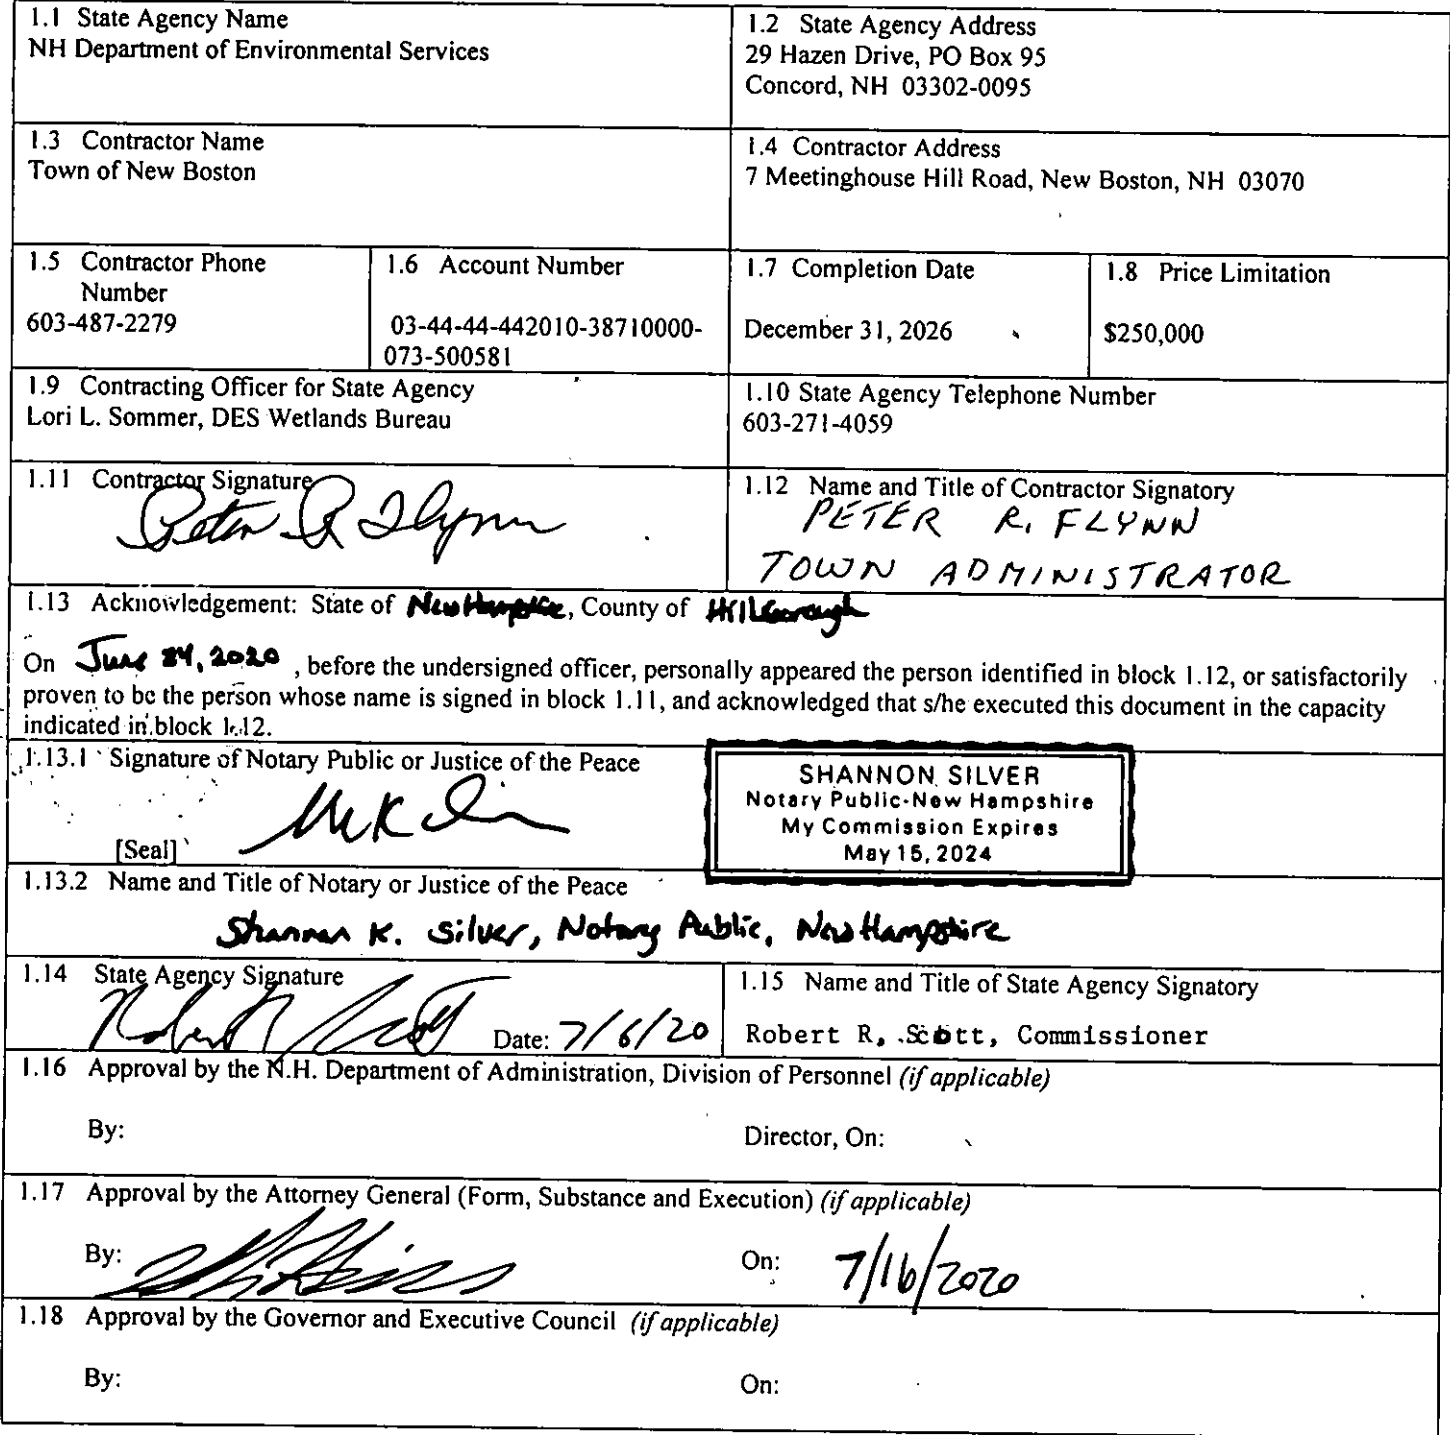 1.1 State Agency Name
NH Department of Environmental Services
1.2 State Agency Address
29 Hazen Drive, PO Box 95
Concord, NH 03302-0095
1.3 Contractor Name
Town of New Boston
1.4 Contractor Address
7 Meetinghouse Hill Road, New Boston, NH 03070
1.5 Contractor Phone
Number
603-487-2279
1.6 Account Number
03-44-44-442010-38710000-
073-500581
1.7 Completion Date
December 31, 2026
1.8 Price Limitation
$250,000
1.9 Contracting Officer for State Agency
Lori L. Sommer, DES Wetlands Bureau
1.10 State Agency Telephone Number
603-271-4059
1.11 Contractor Signature
Peter R Flynn
1.12 Name and Title of Contractor Signatory
PETER R. FLYNN
TOWN ADMINISTRATOR
1.13 Acknowledgement: State of New Hampshire, County of Hillsborough
On June 24, 2020, before the undersigned officer, personally appeared the person identified in block 1.12, or satisfactorily
proven to be the person whose name is signed in block 1.11, and acknowledged that s/he executed this document in the capacity
indicated in block 1.12.
1.13.1 Signature of Notary Public or Justice of the Peace
[Seal]
SHANNON SILVER
Notary Public-New Hampshire
My Commission Expires
May 15, 2024
1.13.2 Name and Title of Notary or Justice of the Peace
Shannon K. Silver, Notary Public, New Hampshire
1.14 State Agency Signature
Date: 7/6/20
1.15 Name and Title of State Agency Signatory
Robert R. Scott, Commissioner
1.16 Approval by the N.H. Department of Administration, Division of Personnel (if applicable)
By:
Director, On:
1.17 Approval by the Attorney General (Form, Substance and Execution) (if applicable)
By:
On: 7/16/2020
1.18 Approval by the Governor and Executive Council (if applicable)
By:
On: